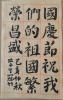 國慶節祝我
們的祖國繁
榮昌盛
仲秋